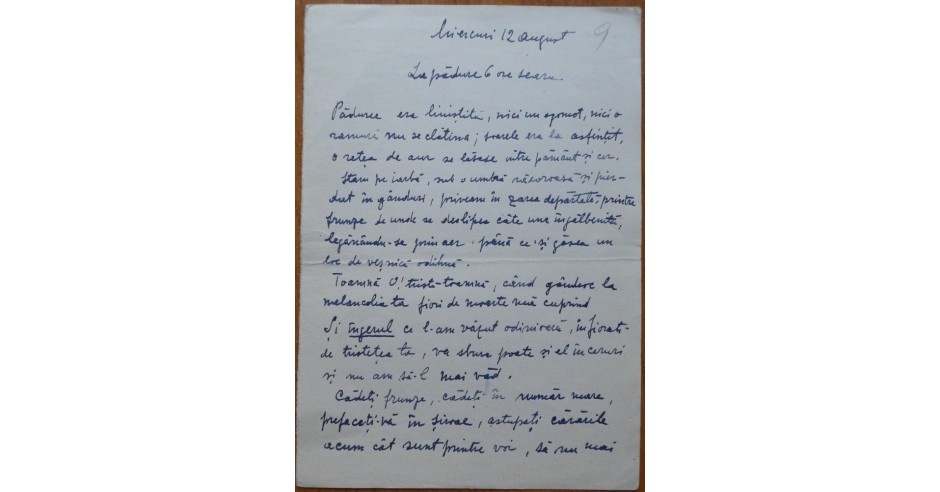 Miercuri 12 august
9.
La pădure 6 ore seara.
Pădurea era liniștită, nici un zgomot, nici o
ramură nu se clătina; soarele era la asfințit,
o rețea de aur se lăsase intre pământ și cer.
Stam pe iarbă, sub o umbră răcoroasă și pier-
dut în gânduri, priveam în zarea depărtată, printre
frunze de unde se deslipea câte una îngălbenită,
legănându-se prin aer până ce-și găsea un
loc de veșnică odihnă.
Toamnă O! tristă-toamnă, când gândesc la
melancolia ta fiori de moarte mă cuprind
Și îngerul ce l-am văzut odinioară, înfiorat
de tristețea ta, va sbura poate și el în ceruri
și nu am să-l mai văd.
Cădeți frunze, cădeți în număr mare,
prefaceți-vă în șiroae, astupați cărările
acum cât sunt printre voi, să nu mai